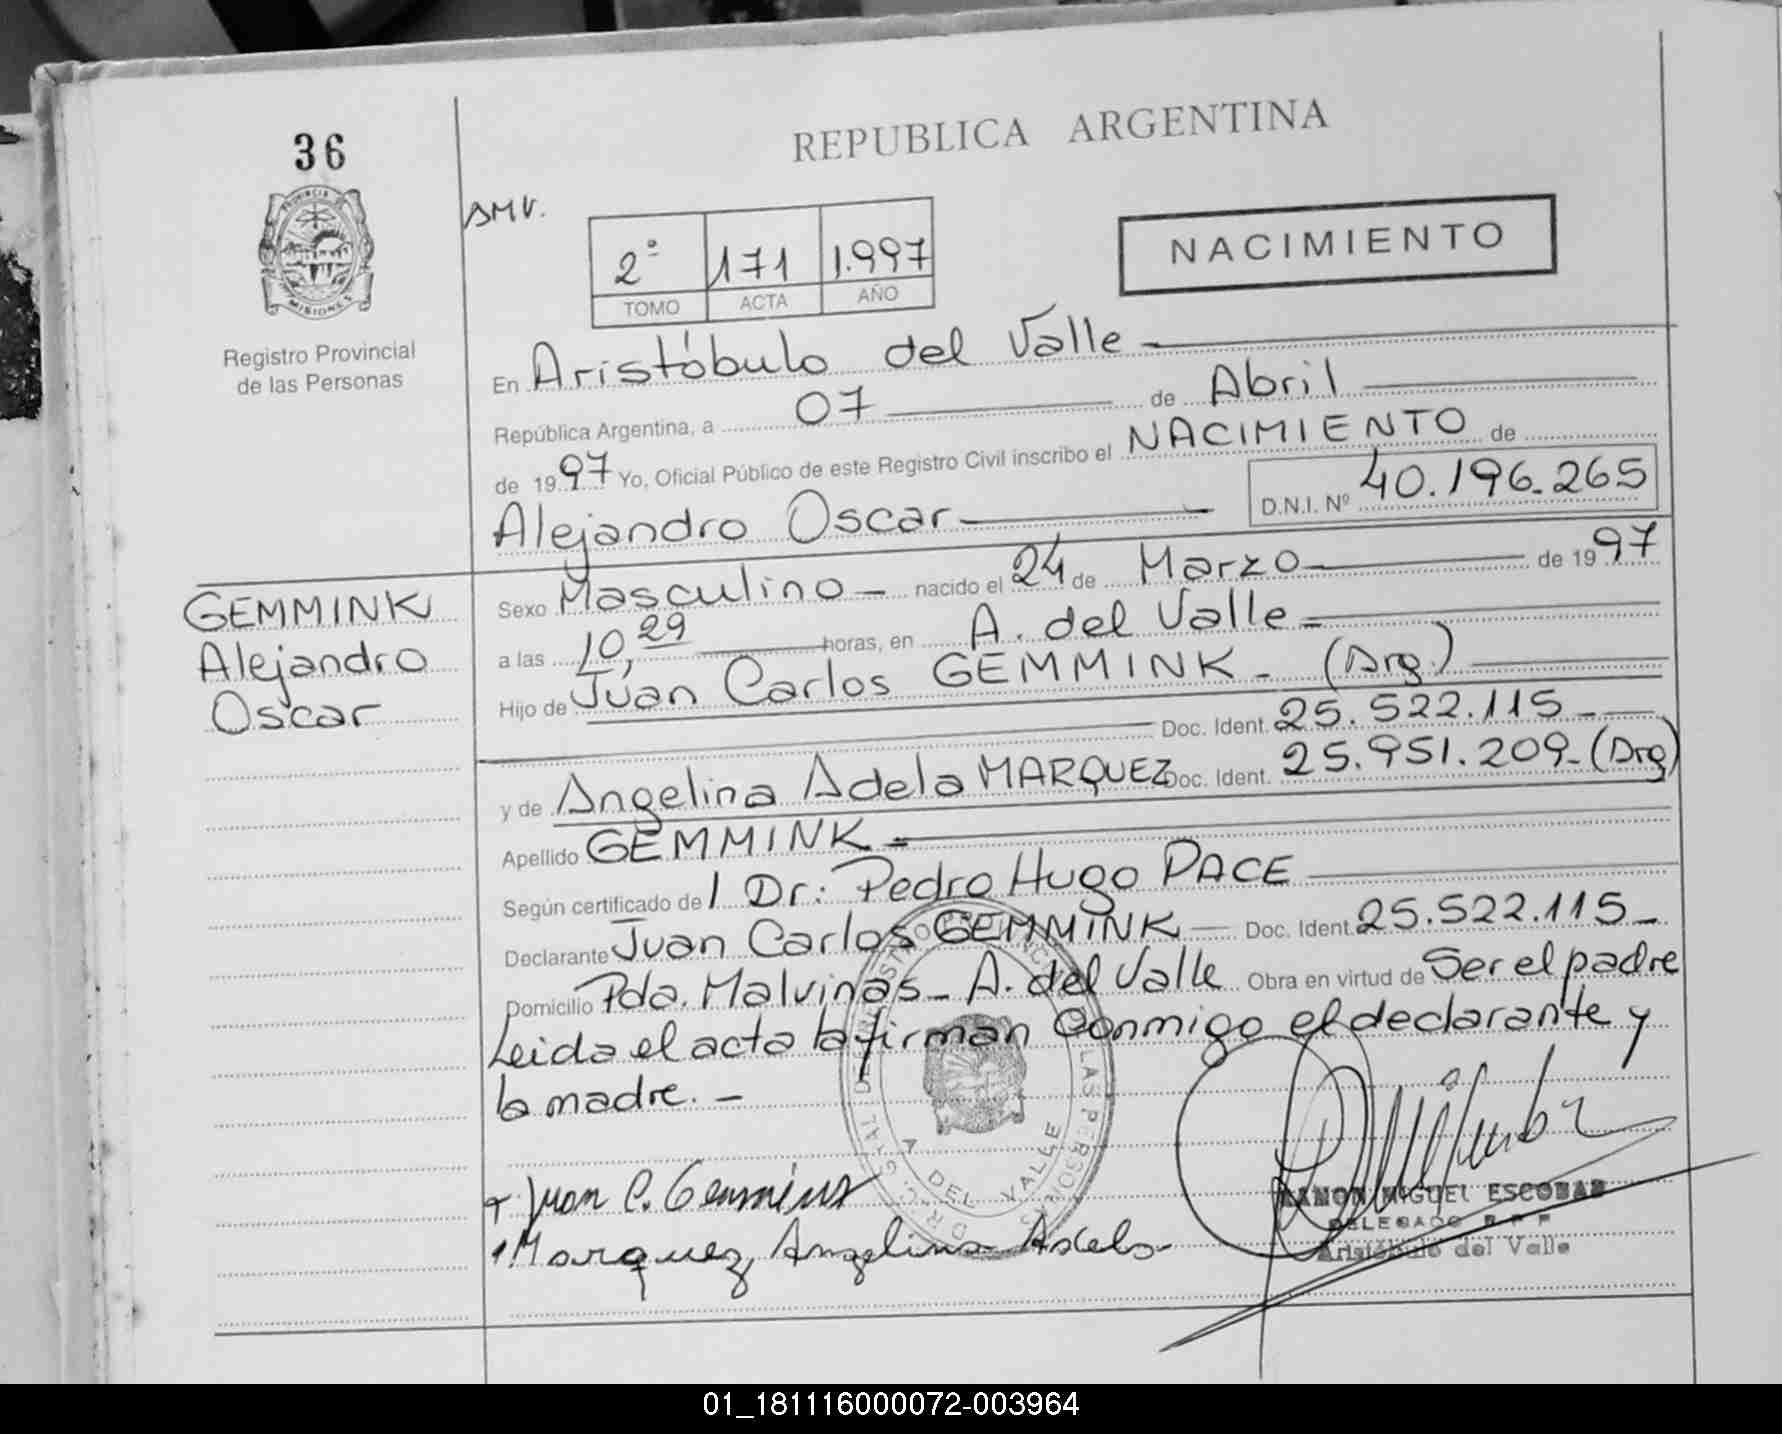 36
REPUBLICA ARGENTINA
PROVINCIA DE
MISIONES
Registro Provincial
de las Personas
AMV.
2º 171 1.997
TOMO ACTA AÑO
NACIMIENTO
En Aristóbulo del Valle
República Argentina, a 07 de Abril
de 1997 Yo, Oficial Público de este Registro Civil inscribo el NACIMIENTO de
Alejandro Oscar D.N.I. Nº 40.196.265
GEMMINK
Alejandro
Oscar
Sexo Masculino nacido el 24 de Marzo de 1997
a las 10,29 horas, en A. del Valle
Hijo de Juan Carlos GEMMINK - (Arg.)
Doc. Ident. 25.522.115
y de Angelina Adela MARQUEZ Doc. Ident. 25.951.209-(Arg)
Apellido GEMMINK
Según certificado de l Dr: Pedro Hugo PACE
Declarante Juan Carlos GEMMINK Doc. Ident. 25.522.115
Domicilio Pda. Malvinas - A. del Valle Obra en virtud de Ser el padre
Leida el acta la firman conmigo el declarante y
la madre. -
A DEL VALLE
LAS PERSONAS
Juan C. Gemmink
Marquez Angelina Adela
RAMON MIGUEL ESCOBAR
DELEGADO
Aristóbulo del Valle
01_181116000072-003964